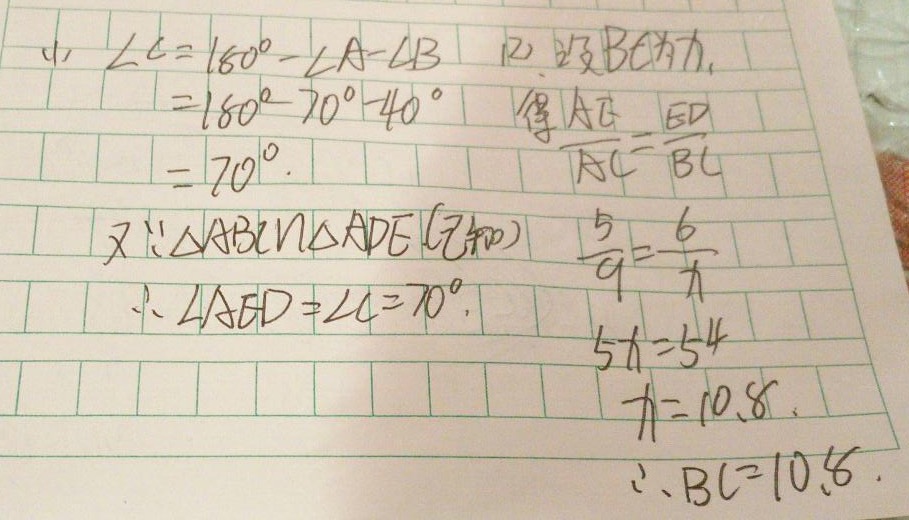 (1) ∠C=180°-∠A-∠B
=180°-70°-40°
=70°.
又∵△ABC∽△ADE(已知)
∴∠AED=∠C=70°.
(2) 设BC为x.
得 AE/AC=ED/BC
5/9=6/x
5x=54
x=10.8.
∴BC=10.8.